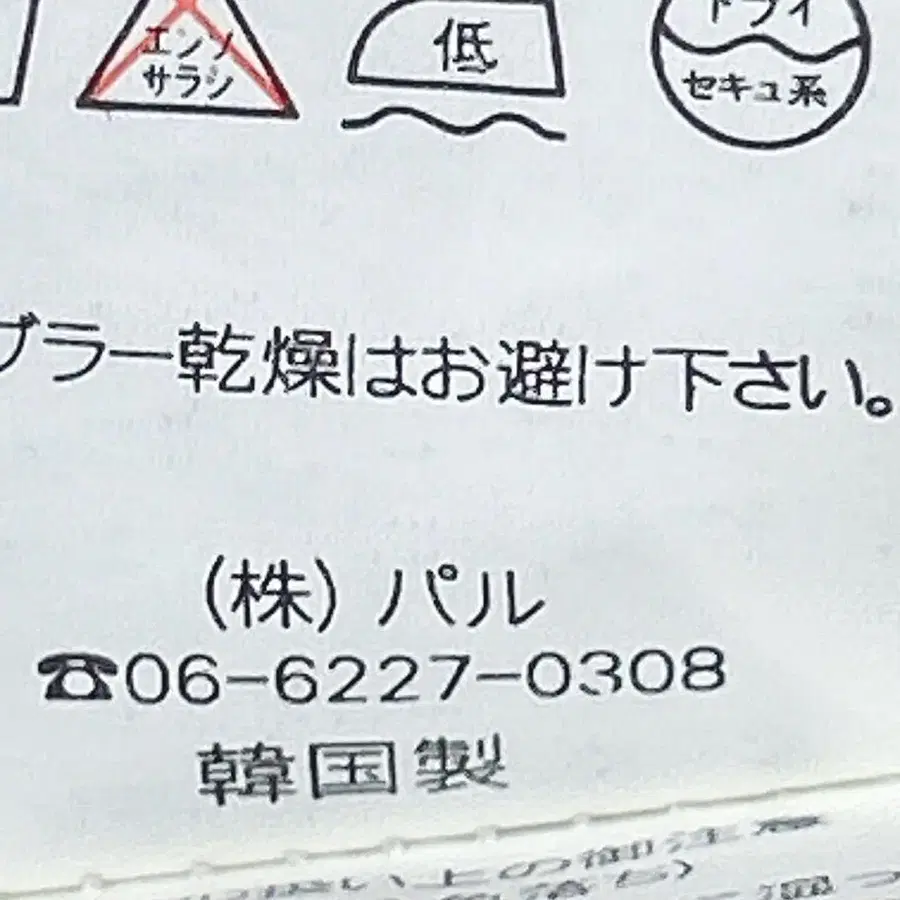 エンソ
サラシ
低
ドライ
セキユ系
ブラー乾燥はお避け下さい。
(株) パル
☎06-6227-0308
韓国製
い上の御注意